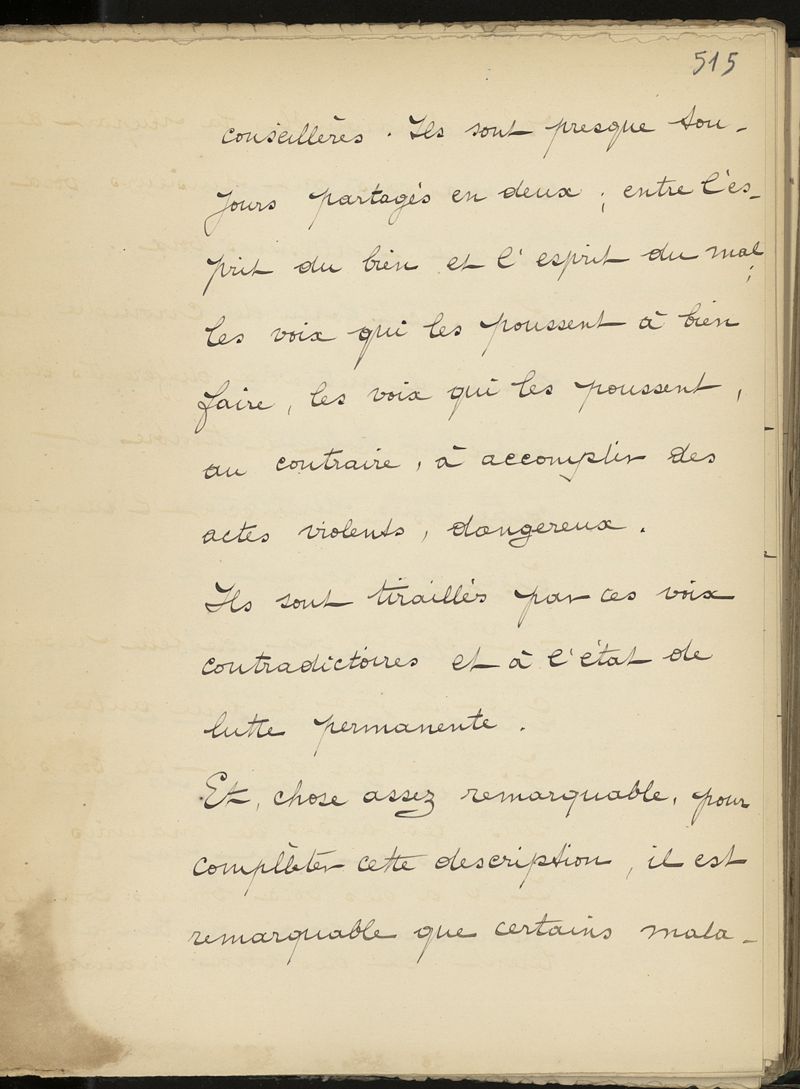 515
conseillères. Ils sont presque tou-
jours partagés en deux ; entre l'es-
prit du bien et l'esprit du mal ;
les voix qui les poussent à bien
faire, les voix qui les poussent,
au contraire, à accomplir des
actes violents, dangereux.
Ils sont tiraillés par ces voix
contradictoires et à l'état de
lutte permanente.
Et, chose assez remarquable, pour
complèter cette description, il est
remarquable que certains mala-